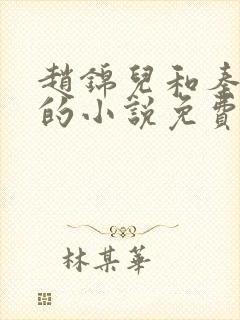 趙錦兒和秦
的小說免費
林某華